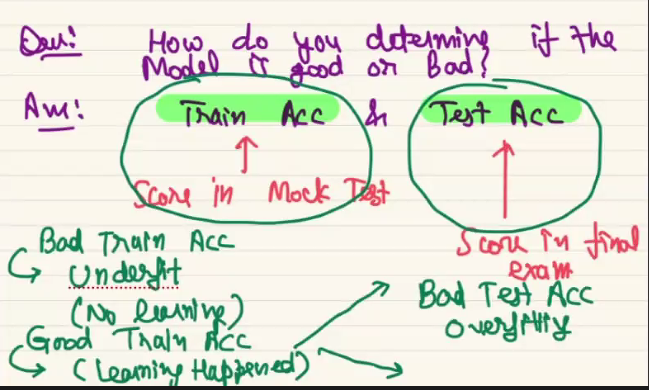 Que: How do you determine if the
Model is good or Bad?
Ans: Train Acc & Test Acc
Score in Mock Test
Score in final
exam
Bad Train Acc
Underfit
(No learning)
Good Train Acc
(Learning Happened)
Bad Test Acc
Overfitting